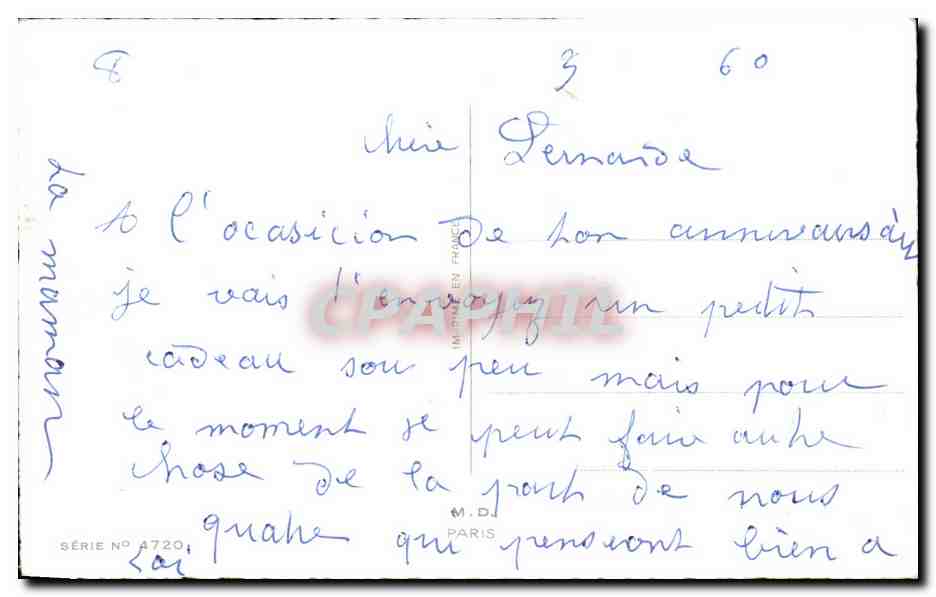 8 3 60
chère Fernande
A l'ocasicion de ton anniversair
je vais t'envoyez un petit
cadeau son peu mais pour
le moment je peut faire autre
chose de la part de nous
quatre qui penseont bien a
toi
ta maman
IMPRIMÉ EN FRANCE
M.D.
PARIS
SÉRIE NO 4720
CPAPHIL